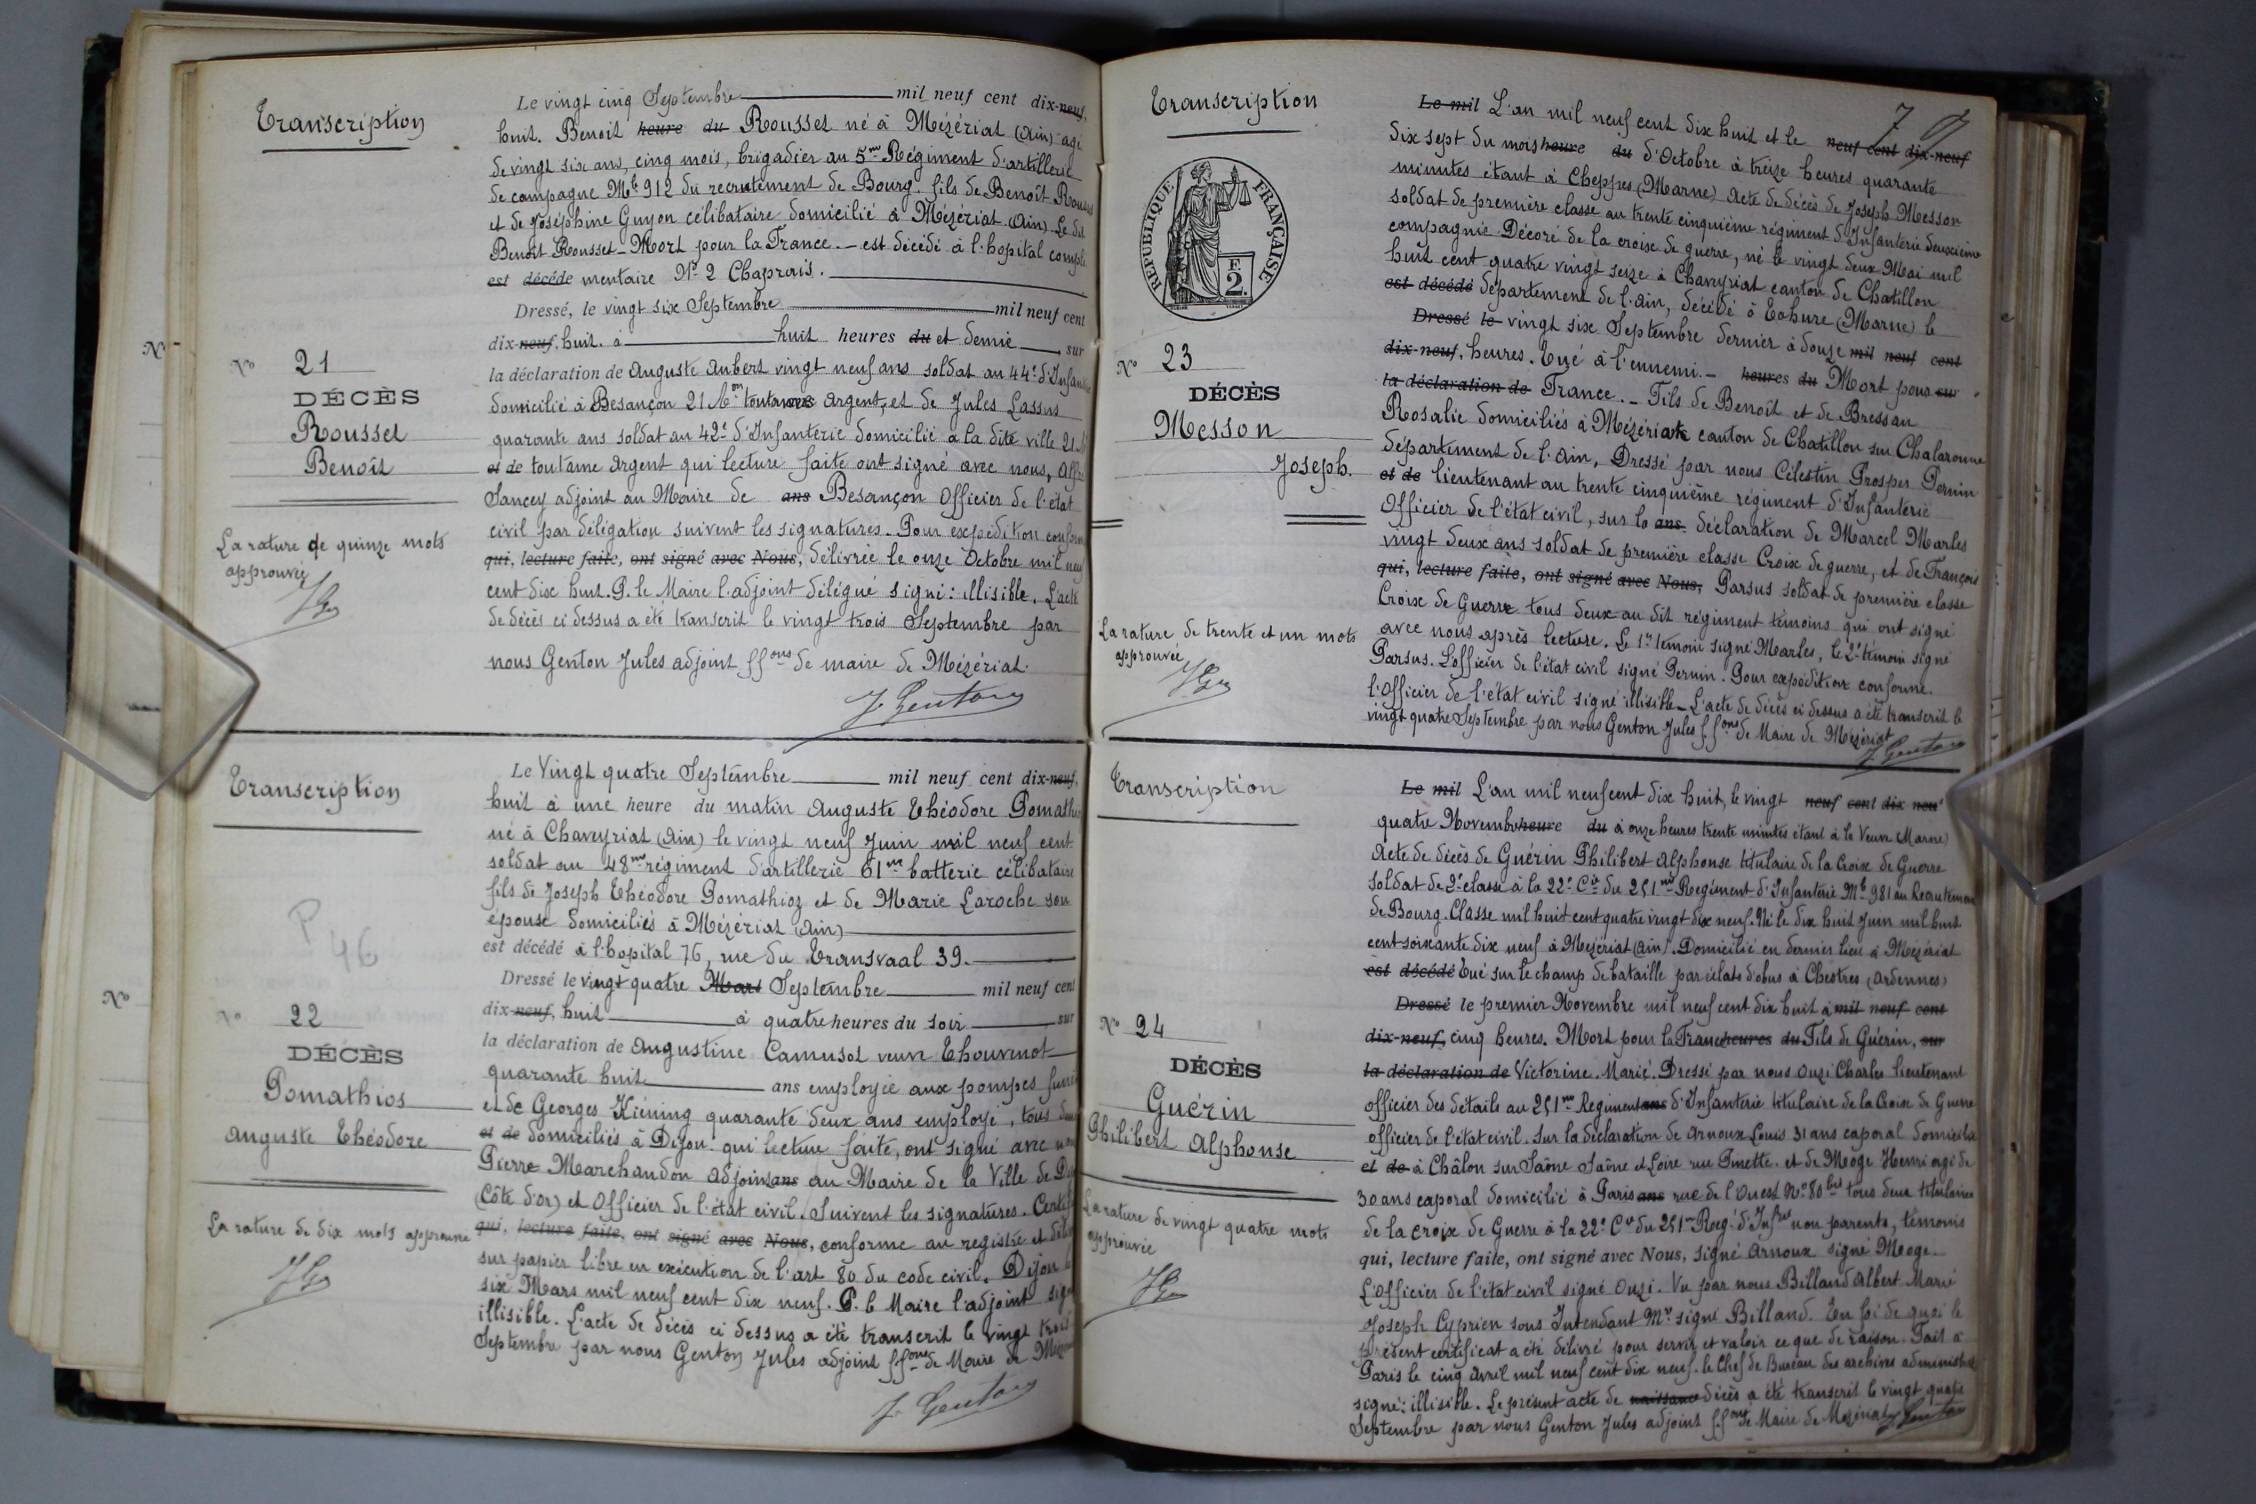 Transcription
Le vingt cinq Septembre mil neuf cent dix-neuf,
huit. Benoit heure du Rousset né à Mézériat (Ain) agé
de vingt six ans, cinq mois, brigadier au 5me Régiment d'artillerie
de campagne Mle 912 du recrutement de Bourg. fils de Benoît Rousset
et de Joséphine Guyon célibataire domicilié à Mézériat (Ain) Le dit
Benoît Rousset - Mort pour la France. - est décédé à l'hopital complé
est décédé mentaire No 2 Chaprais.
Dressé, le vingt six Septembre mil neuf cent
dix-neuf, huit. à huit heures du et demie, sur
la déclaration de Auguste Aubert vingt neuf ans soldat au 44e d'Infanterie
domicilié à Besançon 21 argent, et de Jules Lassus
quarante ans soldat au 42e d'Infanterie domicilié à la dite ville 21
et de toutame argent qui lecture faite ont signé avec nous,
Sancey adjoint au Maire de ans Besançon Officier de l'état
civil par délégation suivent les signatures. Pour expédition conforme
qui, lecture faite, ont signé avec Nous, délivrée le onze Octobre mil neuf
cent dix huit. P. le Maire l'adjoint délégué signé: illisible. L'acte
de décès ci dessus a été transcrit le vingt trois Septembre par
nous Genton Jules adjoint ffons de maire de Mézériat.
J. Genton
No 21
DÉCÈS
Rousset
Benoît
La rature de quinze mots
approuvée
JG
Transcription
Le Vingt quatre Septembre mil neuf cent dix-neuf,
huit à une heure du matin Auguste Théodore Pomathios
né à Chaveyriat (Ain) le vingt neuf Juin mil neuf cent
soldat au 48me régiment d'artillerie 61me batterie célibataire
fils de Joseph Théodore Pomathioz et de Marie Laroche son
épouse domiciliés à Mézériat (Ain)
est décédé à l'hopital 76, rue du Transvaal 39.
Dressé le vingt quatre Mars Septembre mil neuf cent
dix-neuf, huit à quatre heures du soir sur
la déclaration de Augustine Camusot veuve Thouvenot
quarante huit ans employée aux pompes funè
et de Georges Kiéning quarante deux ans employé, tous deux
et de domiciliés à Dijon qui lecture faite, ont signé avec nous
Pierre Marchandon Adjoint ans au Maire de la Ville de Dijon
(Côte d'or) et Officier de l'état civil. Suivent les signatures. Certifié
qui, lecture faite, ont signé avec Nous, conforme au registre et délivré
sur papier libre en exécution de l'art 80 du code civil. Dijon le
six Mars mil neuf cent dix neuf. P. le Maire l'adjoint signé
illisible. L'acte de décès ci dessus a été transcrit le vingt trois
Septembre par nous Genton Jules adjoint ffons de Maire de Mézériat
J. Genton
P
46
No 22
DÉCÈS
Pomathios
Auguste Théodore
La rature de dix mots approuvée
JG
7
Transcription
Le mil L'an mil neuf cent dix huit et le neuf cent dix-neuf
dix sept du mois heure du d'Octobre à treize heures quarante
minutes étant à Cheppes (Marne) Acte de décès de Joseph Messon
soldat de première classe au trente cinquième régiment d'Infanterie deuxième
compagnie Décoré de la croix de guerre, né le vingt deux Mai mil
huit cent quatre vingt seize à Chaveyriat canton de Chatillon
est décédé département de l'Ain, décédé à Tahure (Marne) le
Dressé le vingt six Septembre dernier à douze mil neuf cent
dix-neuf, heures. Tué à l'ennemi. - heures du Mort pour sur
la déclaration de France. - Fils de Benoît et de Bressan
Rosalie domiciliés à Mézériat canton de Chatillon sur Chalaronne
département de l'Ain, Dressé par nous Célestin Prosper Pernin
et de lieutenant au trente cinquième régiment d'Infanterie
Officier de l'état civil, sur la ans déclaration de Marcel Marles
vingt deux ans soldat de première classe Croix de guerre, et de François
qui, lecture faite, ont signé avec Nous, Parsus soldat de première classe
Croix de Guerre tous deux au dit régiment témoins qui ont signé
avec nous après lecture. Le 1er témoin signé Marles, le 2e témoin signé
Parsus. L'officier de l'état civil signé Pernin. Pour expédition conforme.
l'Officier de l'état civil signé illisible - L'acte de décès ci dessus a été transcrit le
vingt quatre Septembre par nous Genton Jules ffons de Maire de Mézériat
J. Genton
RÉPUBLIQUE FRANÇAISE
F.
2.
No 23
DÉCÈS
Messon
Joseph.
La rature de trente et un mots
approuvée
JG
Transcription
Le mil L'an mil neuf cent dix huit, le vingt neuf cent dix neuf
quatre Novembre heure du à onze heures trente minutes étant à la Veuve (Marne)
Acte de décès de Guérin Philibert Alphonse titulaire de la Croix de Guerre
soldat de 2e classe à la 22e Cie du 251me Régiment d'Infanterie Mle 981 au Recrutement
de Bourg. Classe mil huit cent quatre vingt dix neuf. Né le dix huit Juin mil huit
cent soixante dix neuf à Mézériat (Ain). Domicilié en dernier lieu à Mézériat
est décédé Tué sur le champ de bataille par éclats d'obus à Chestres (Ardennes)
Dressé le premier Novembre mil neuf cent dix huit à mil neuf cent
dix-neuf, cinq heures. Mort pour la France heures du Fils de Guérin, sur
la déclaration de Victorine Marie. Dressé par nous Ouzi Charles lieutenant
officier des détails au 251me Régiment ans d'Infanterie titulaire de la Croix de Guerre
officier de l'état civil. Sur la déclaration de Arnoux Louis 31 ans caporal domicilié
et de à Châlon sur Saône Saône et Loire rue Pinette. et de Moge Henri agé de
30 ans caporal domicilié à Paris ans rue de l'Ouest No 80 bis tous deux titulaires
de la croix de Guerre à la 22e Cie du 251me Reg. d'Infrie non parents, témoins
qui, lecture faite, ont signé avec Nous, signé Arnoux signé Moge.
L'Officier de l'état civil signé Ouzi. Vu par nous Billand Albert Marie
Joseph Cyprien sous Intendant Mre signé Billand. En foi de quoi le
présent certificat a été délivré pour servir et valoir ce que de raison. Fait à
Paris le cinq Avril mil neuf cent dix neuf. le Chef de Bureau des archives administ
signé: illisible. Le présent acte de naissance décès a été transcrit le vingt quatre
Septembre par nous Genton Jules adjoint ffons de Maire de Mézériat J. Genton
No 24
DÉCÈS
Guérin
Philibert Alphonse
La rature de vingt quatre mots
approuvée
JG
No
No